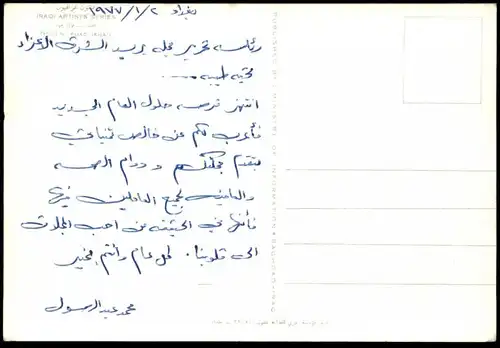 بغداد ١٩٧٧/١/٢
IRAQI ARTISTS SERIES
رئاسة تحرير مجلة بريد الشرق الاعزاء
تحية طيبة ....
انتهز فرصة حلول العام الجديد
فأعرب لكم عن خالص تمنياتي
بتقدم مجلتكم ودوام الصحة
والعافية لجميع العاملين فيها
فأنها في الحقيقة من احب المجلات
الى قلوبنا. كل عام وأنتم بخير
محمد عبد الرسول